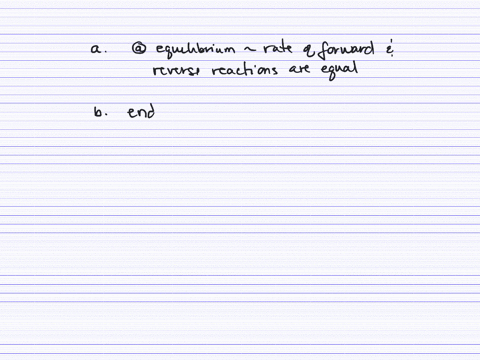 a. @ equilibrium ~ rate of forward &
reverse reactions are equal
b. end